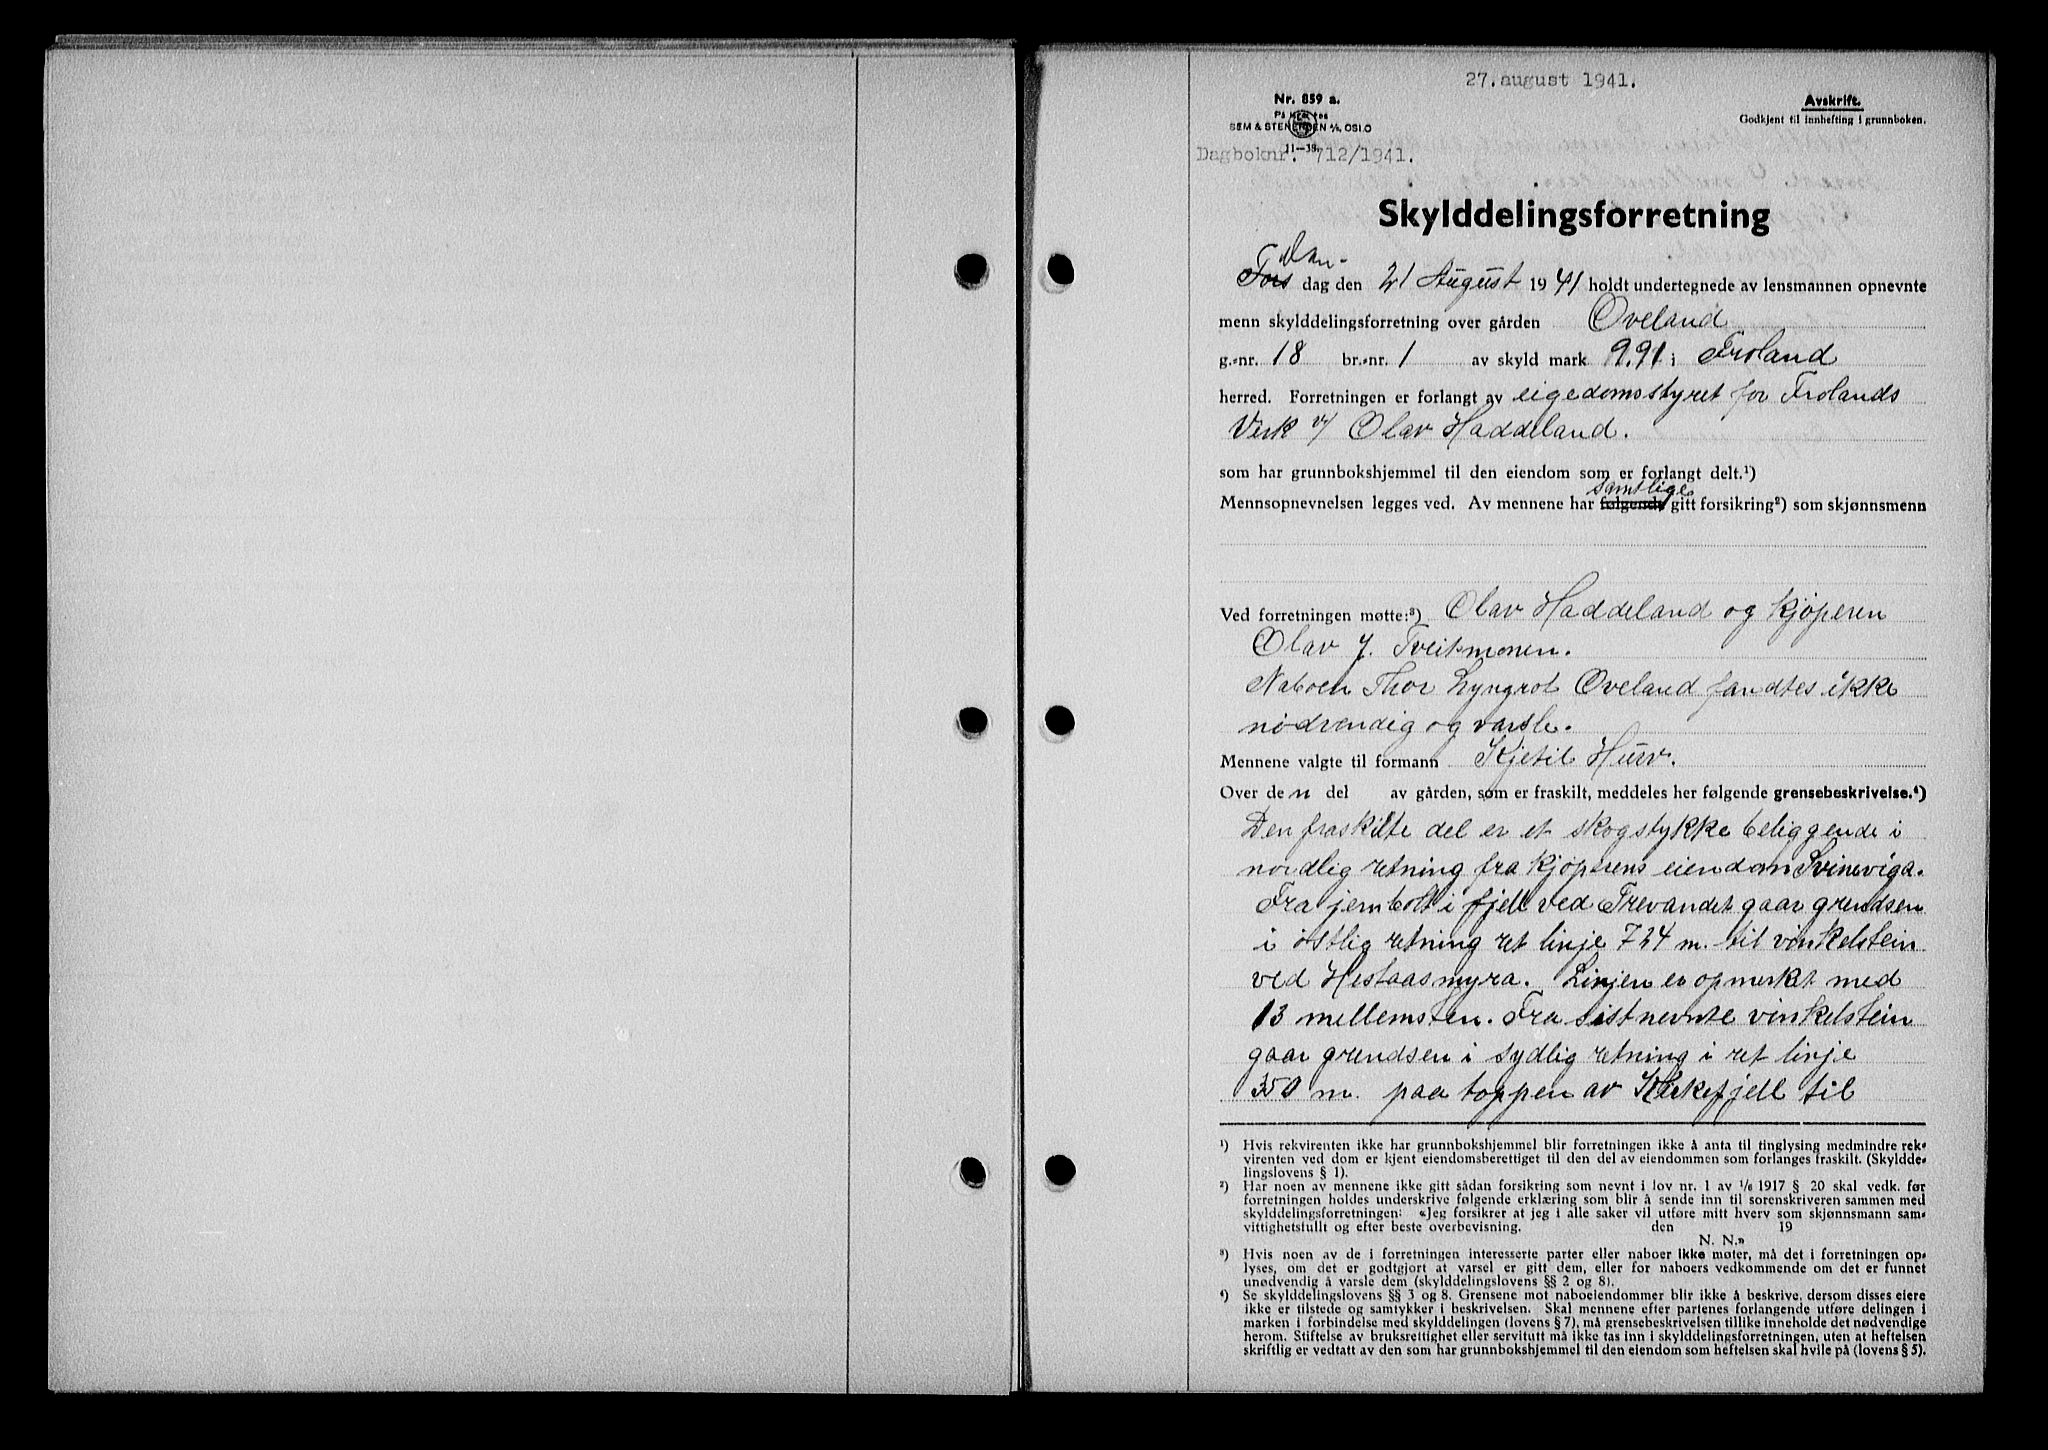 27. august 1941.
Nr. 859 a.
På lager hos
SEM & STENERSEN A/S, OSLO
11-38.
Avskrift.
Godkjent til innhefting i grunnboken.
Dagboknr. 712/1941.
Skylddelingsforretning
Fors dag den 21 August 1941 holdt undertegnede av lensmannen opnevnte
menn skylddelingsforretning over gården Øveland
g.-nr. 18 br.-nr. 1 av skyld mark 9.91 i Froland
herred. Forretningen er forlangt av eigedomsstyret for Frolands
Verk v/ Olav Haddeland.
som har grunnbokshjemmel til den eiendom som er forlangt delt.¹)
samtlige
Mennsopnevnelsen legges ved. Av mennene har følgende gitt forsikring²) som skjønnsmenn
Ved forretningen møtte:³) Olav Haddeland og kjøperen
Olav J. Tveitmonen.
Naboen Thor Lyngrot Øveland fandtes ikke
nødvendig og varsle.
Mennene valgte til formann Kjetil Hurv.
Over den del av gården, som er fraskilt, meddeles her følgende grensebeskrivelse.⁴)
Den fraskilte del er et skogstykke beliggende i
nordlig retning fra kjøperens eiendom Svineviga.
Fra jernbolt i fjell ved Trevandet gaar grendsen
i østlig retning ret linje 724 m. til vinkelstein
ved Hestaasmyra. Linjen er opmerkt med
13 mellemsten. Fra sistnevnte vinkelstein
gaar grendsen i sydlig retning i ret linje
350 m. paa toppen av Kirkefjell til
¹) Hvis rekvirenten ikke har grunnbokshjemmel blir forretningen ikke å anta til tinglysing medmindre rek-
virenten ved dom er kjent eiendomsberettiget til den del av eiendommen som forlanges fraskilt. (Skyldde-
lingslovens § 1).
²) Har noen av mennene ikke gitt sådan forsikring som nevnt i lov nr. 1 av 1/6 1917 § 20 skal vedk. før
forretningen holdes underskrive følgende erklæring som blir å sende inn til sorenskriveren sammen med
skylddelingsforretningen: «Jeg forsikrer at jeg i alle saker vil utføre mitt hverv som skjønnsmann sam-
vittighetsfullt og efter beste overbevisning. den 19
N. N.»
³) Hvis noen av de i forretningen interesserte parter eller naboer ikke møter, må det i forretningen op-
lyses, om det er godtgjort at varsel er gitt dem, eller for naboers vedkommende om det er funnet
unødvendig å varsle dem (skylddelingslovens §§ 2 og 8).
⁴) Se skylddelingslovens §§ 3 og 8. Grensene mot naboeiendommer blir ikke å beskrive, dersom disses eiere
ikke er tilstede og samtykker i beskrivelsen. Skal mennene efter partenes forlangende utføre delingen i
marken i forbindelse med skylddelingen (lovens § 7), må grensebeskrivelsen tillike inneholde det nødvendige
herom. Stiftelse av bruksrettighet eller servitutt må ikke tas inn i skylddelingsforretningen, uten at heftelsen
skriftlig er vedtatt av den som har grunnbokshjemmel til den eiendom som heftelsen skal hvile på (lovens § 5).